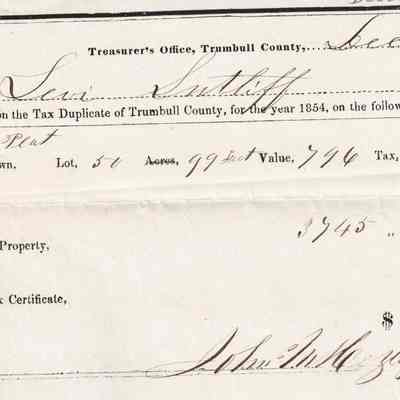 Treasurer's Office, Trumbull County,
Levi Sutliff
on the Tax Duplicate of Trumbull County, for the year 1854, on the follow
Plat
wn. Lot, 50 Acres, 99 feet Value, 796 Tax,
3745 "
Property,
x Certificate,
$
John M